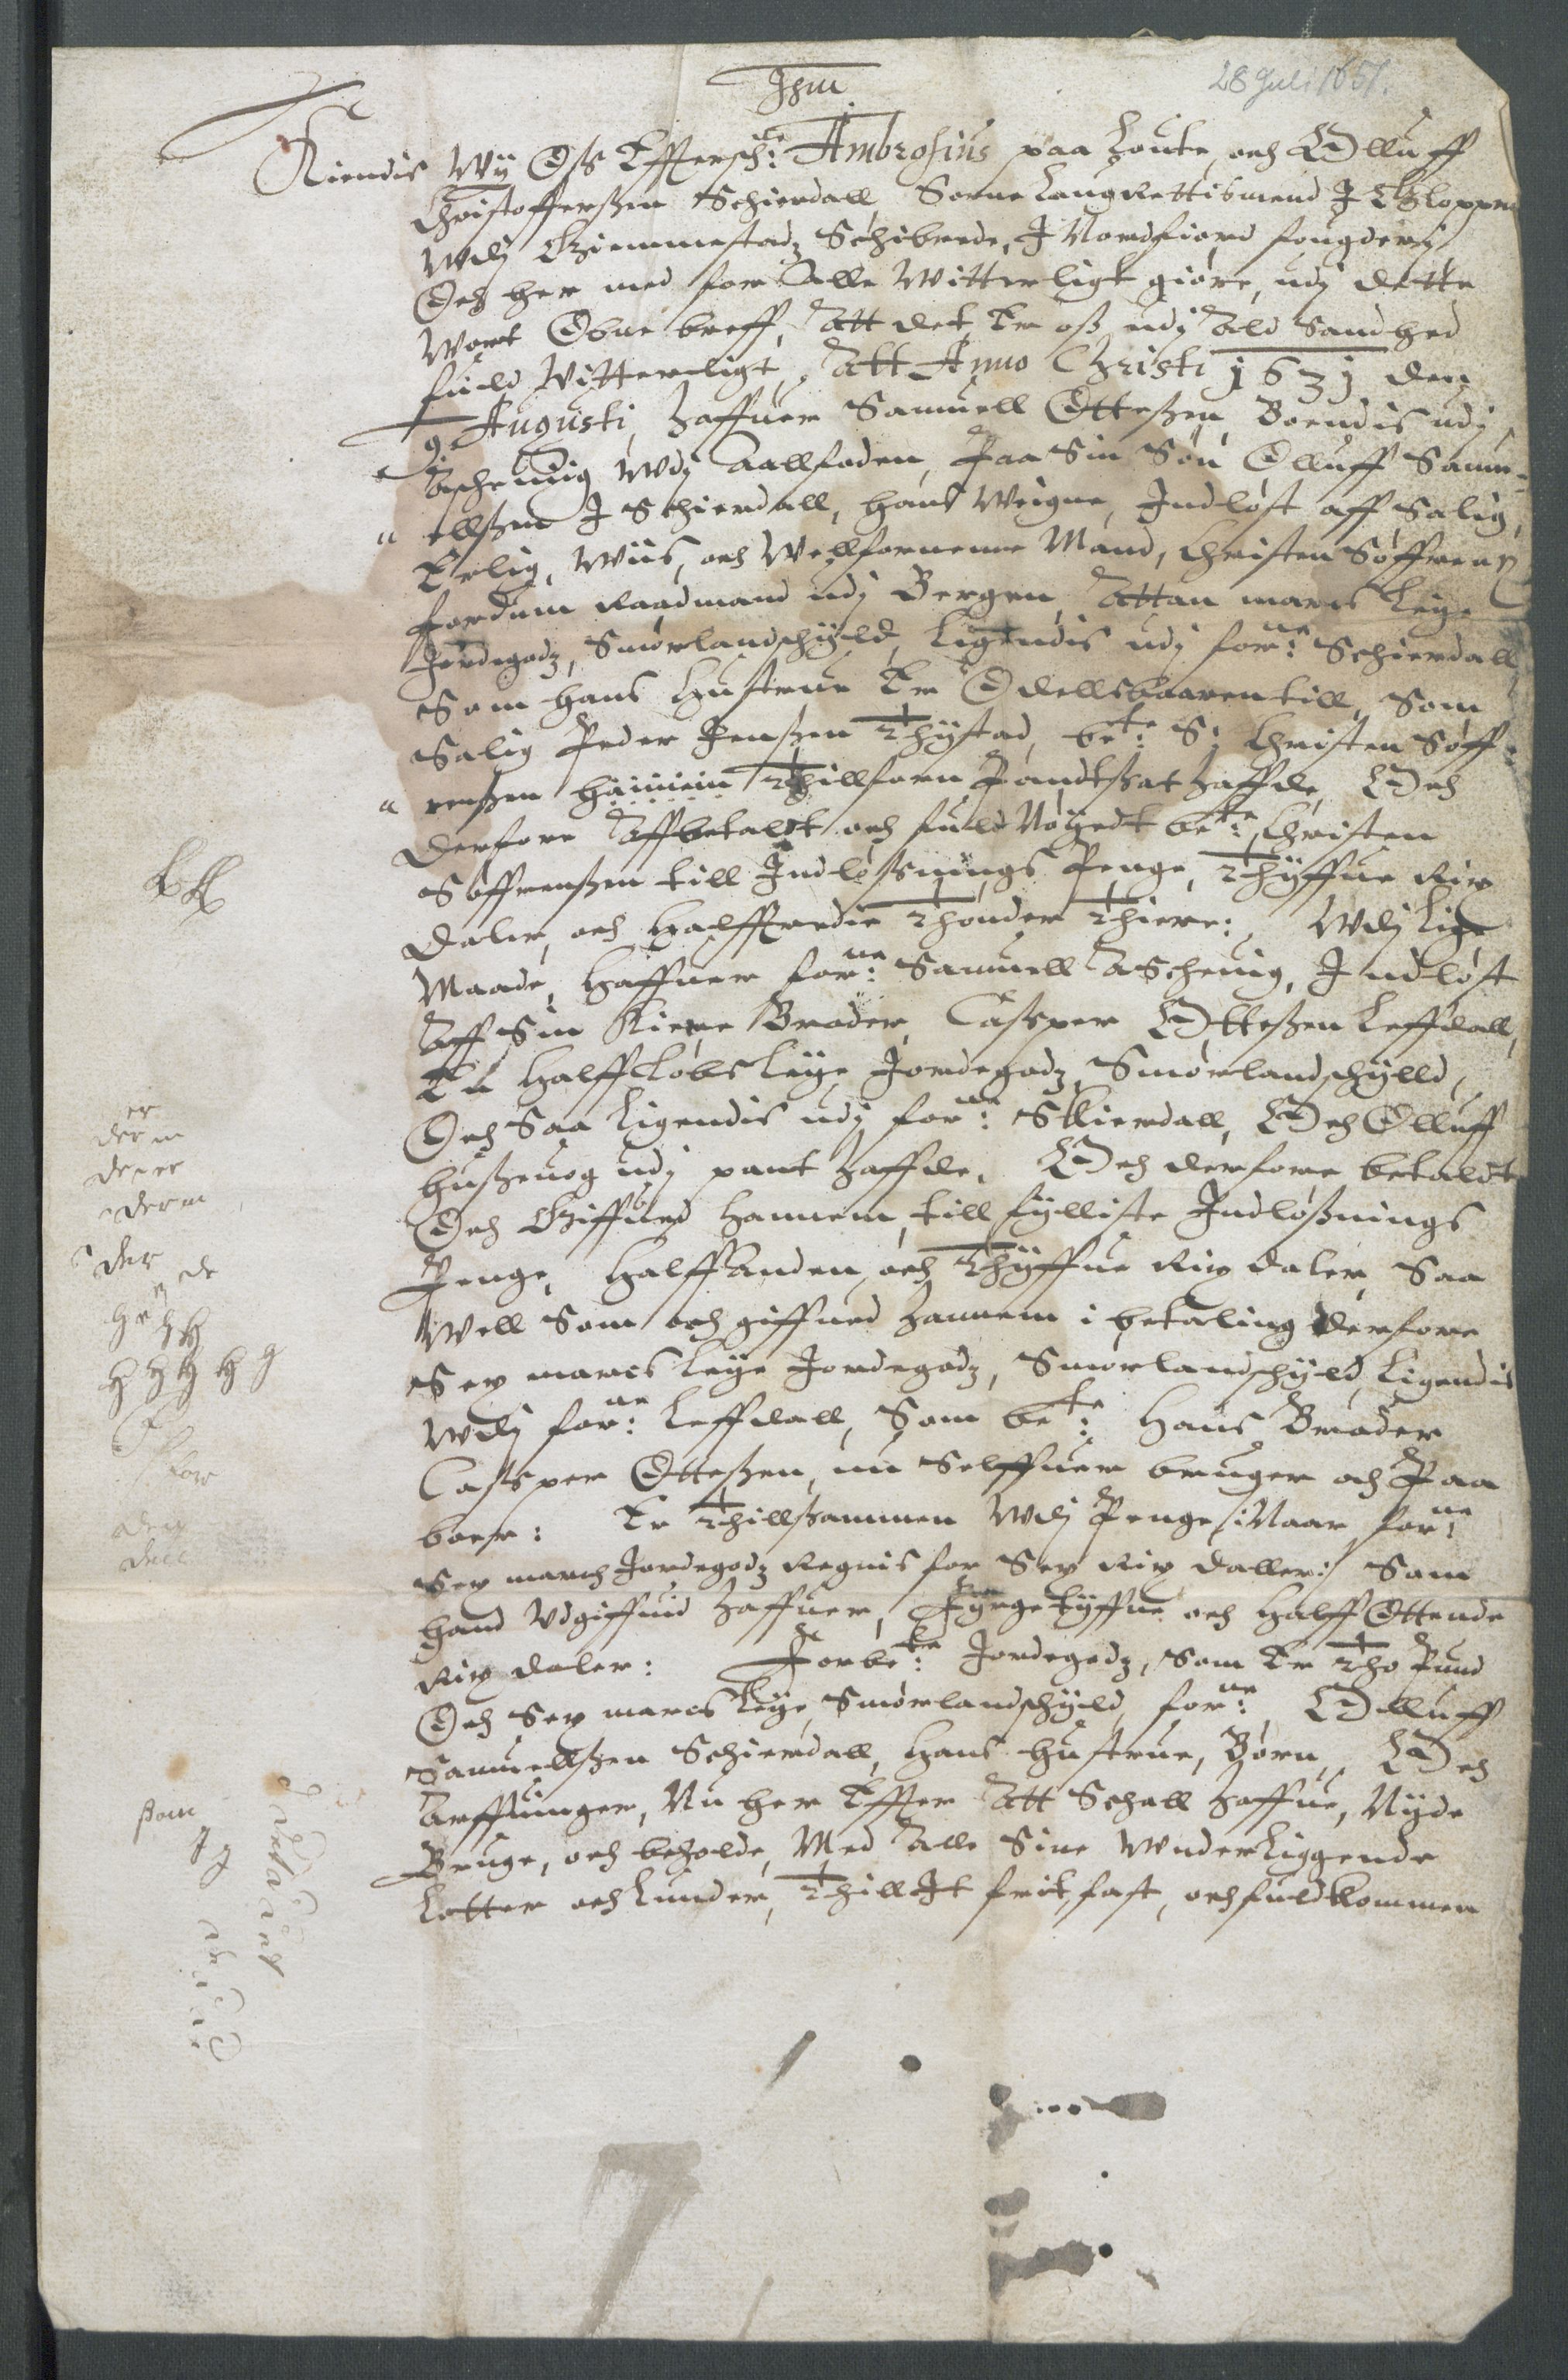 Jhm
28 Juli 1651.
Kiendis Wij Oss Effterschne: Ambrosius paa Loute, och Olluff
Christofferssen Schierdall, Sorne Laugrettismend J Gloppen
Wdj Giemmestadz Schibrede, J Nordfiord fougderj
Och her med for Alle Witterligt giøre, udj dette
Wort Obne breff, Att det Er oss udj Ald Sandhed
fuld Vitterligt, Att Anno Christi 1631 den
9. Augusti, Haffuer Samuell Ottessen Boendis udj
Ascheuig Wdj Aallfoden, Paa Sin Søn Olluff Samu-
" ellssen J Schierdall, hans Weigne, Indløst aff Salig,
Erlig, Wiis, och Wellforneme Mand, Christen Søffrens
fordum Raadmand udj Bergen, Attan marcs Leye
Jordegodz, Smørlandschyld, Ligendis udj forne: Schierdall
Som hans Hustrue Er Odellsbaaren till, Som
Salig Peder Jenssen Thystad, bete: S: Christen Søff-
" renssen hannem Thillforn Pandtssat Haffde, Och
Derfore Affbetaldt och fuld Nøyedt bete: Christen
Søffrenssen till Indløssnings Penge, Thyffue Rix
Daler, och Halfftredie Thønder Thiere: Wdj Lige
Maade, Haffuer forne: Samuell Ascheuig, Indløst
Aff Sin Kiere Broder, Cassper Ottessen Leffdall,
Et Halff Løbs Leye Jordegodz, Smørlandschylld,
Och Saa Ligendis udj forne: Skierdall, Och Olluff
Husseuog udj pant Haffde. Och derfore betaldt
Och Giffued Hannem, till fylliste Indløssnings
Penge, Halff Anden och Thyffue Rix daler, Saa
Well Som och giffued Hannem i betaling derfore
Sex marcs Leye Jordegodz, Smørlandschyld, Ligendis
Wdj forne: Leffdall, Som bete: Hans Broder
Cassper Ottessen, nu Selffuer bruger och Paa
boer: Er Thillssammen Wdj Penge /: Naar forne:
Sex march Jordegodz Regnis for Sex Rix daller :/ Som
hand Vdgiffuid Haffuer, Fyrgetyffue och Halff Ottende
Rix daler: Forbete: Jordegodz, Som Er Tho Pund
Och Sex marcs Leye, Smørlandschyld, forne: Olluff
Samuellssen Schierdall, Hans Hustrue, Børn, Och
Arffuinger, Nu her Effter Att Schall Haffue, Nyde
Bruge, och beholde, Med Alle Sine Wnderliggende
Lotter och Lunder, Thill It frit, fast, och fuldkommen
er
der
der
der
de
H H H H
for
den
som